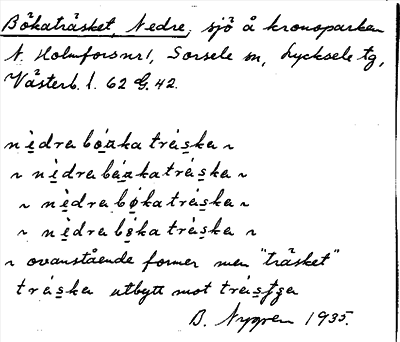 Bökaträsket, Nedre, sjö å kronoparken
N. Holmfors nr 1, Sorsele sn, Lycksele tg,
Västerb. l. 62 G. 42.
nèdra bóaka tráska ~
~ nèdra báaka tráska ~
~ nèdra bǿka tráska ~
~ nèdra bòka tráska ~
~ ovanstående former men "träsket"
tráska utbytt mot trásʃga
B. Nygren 1935.